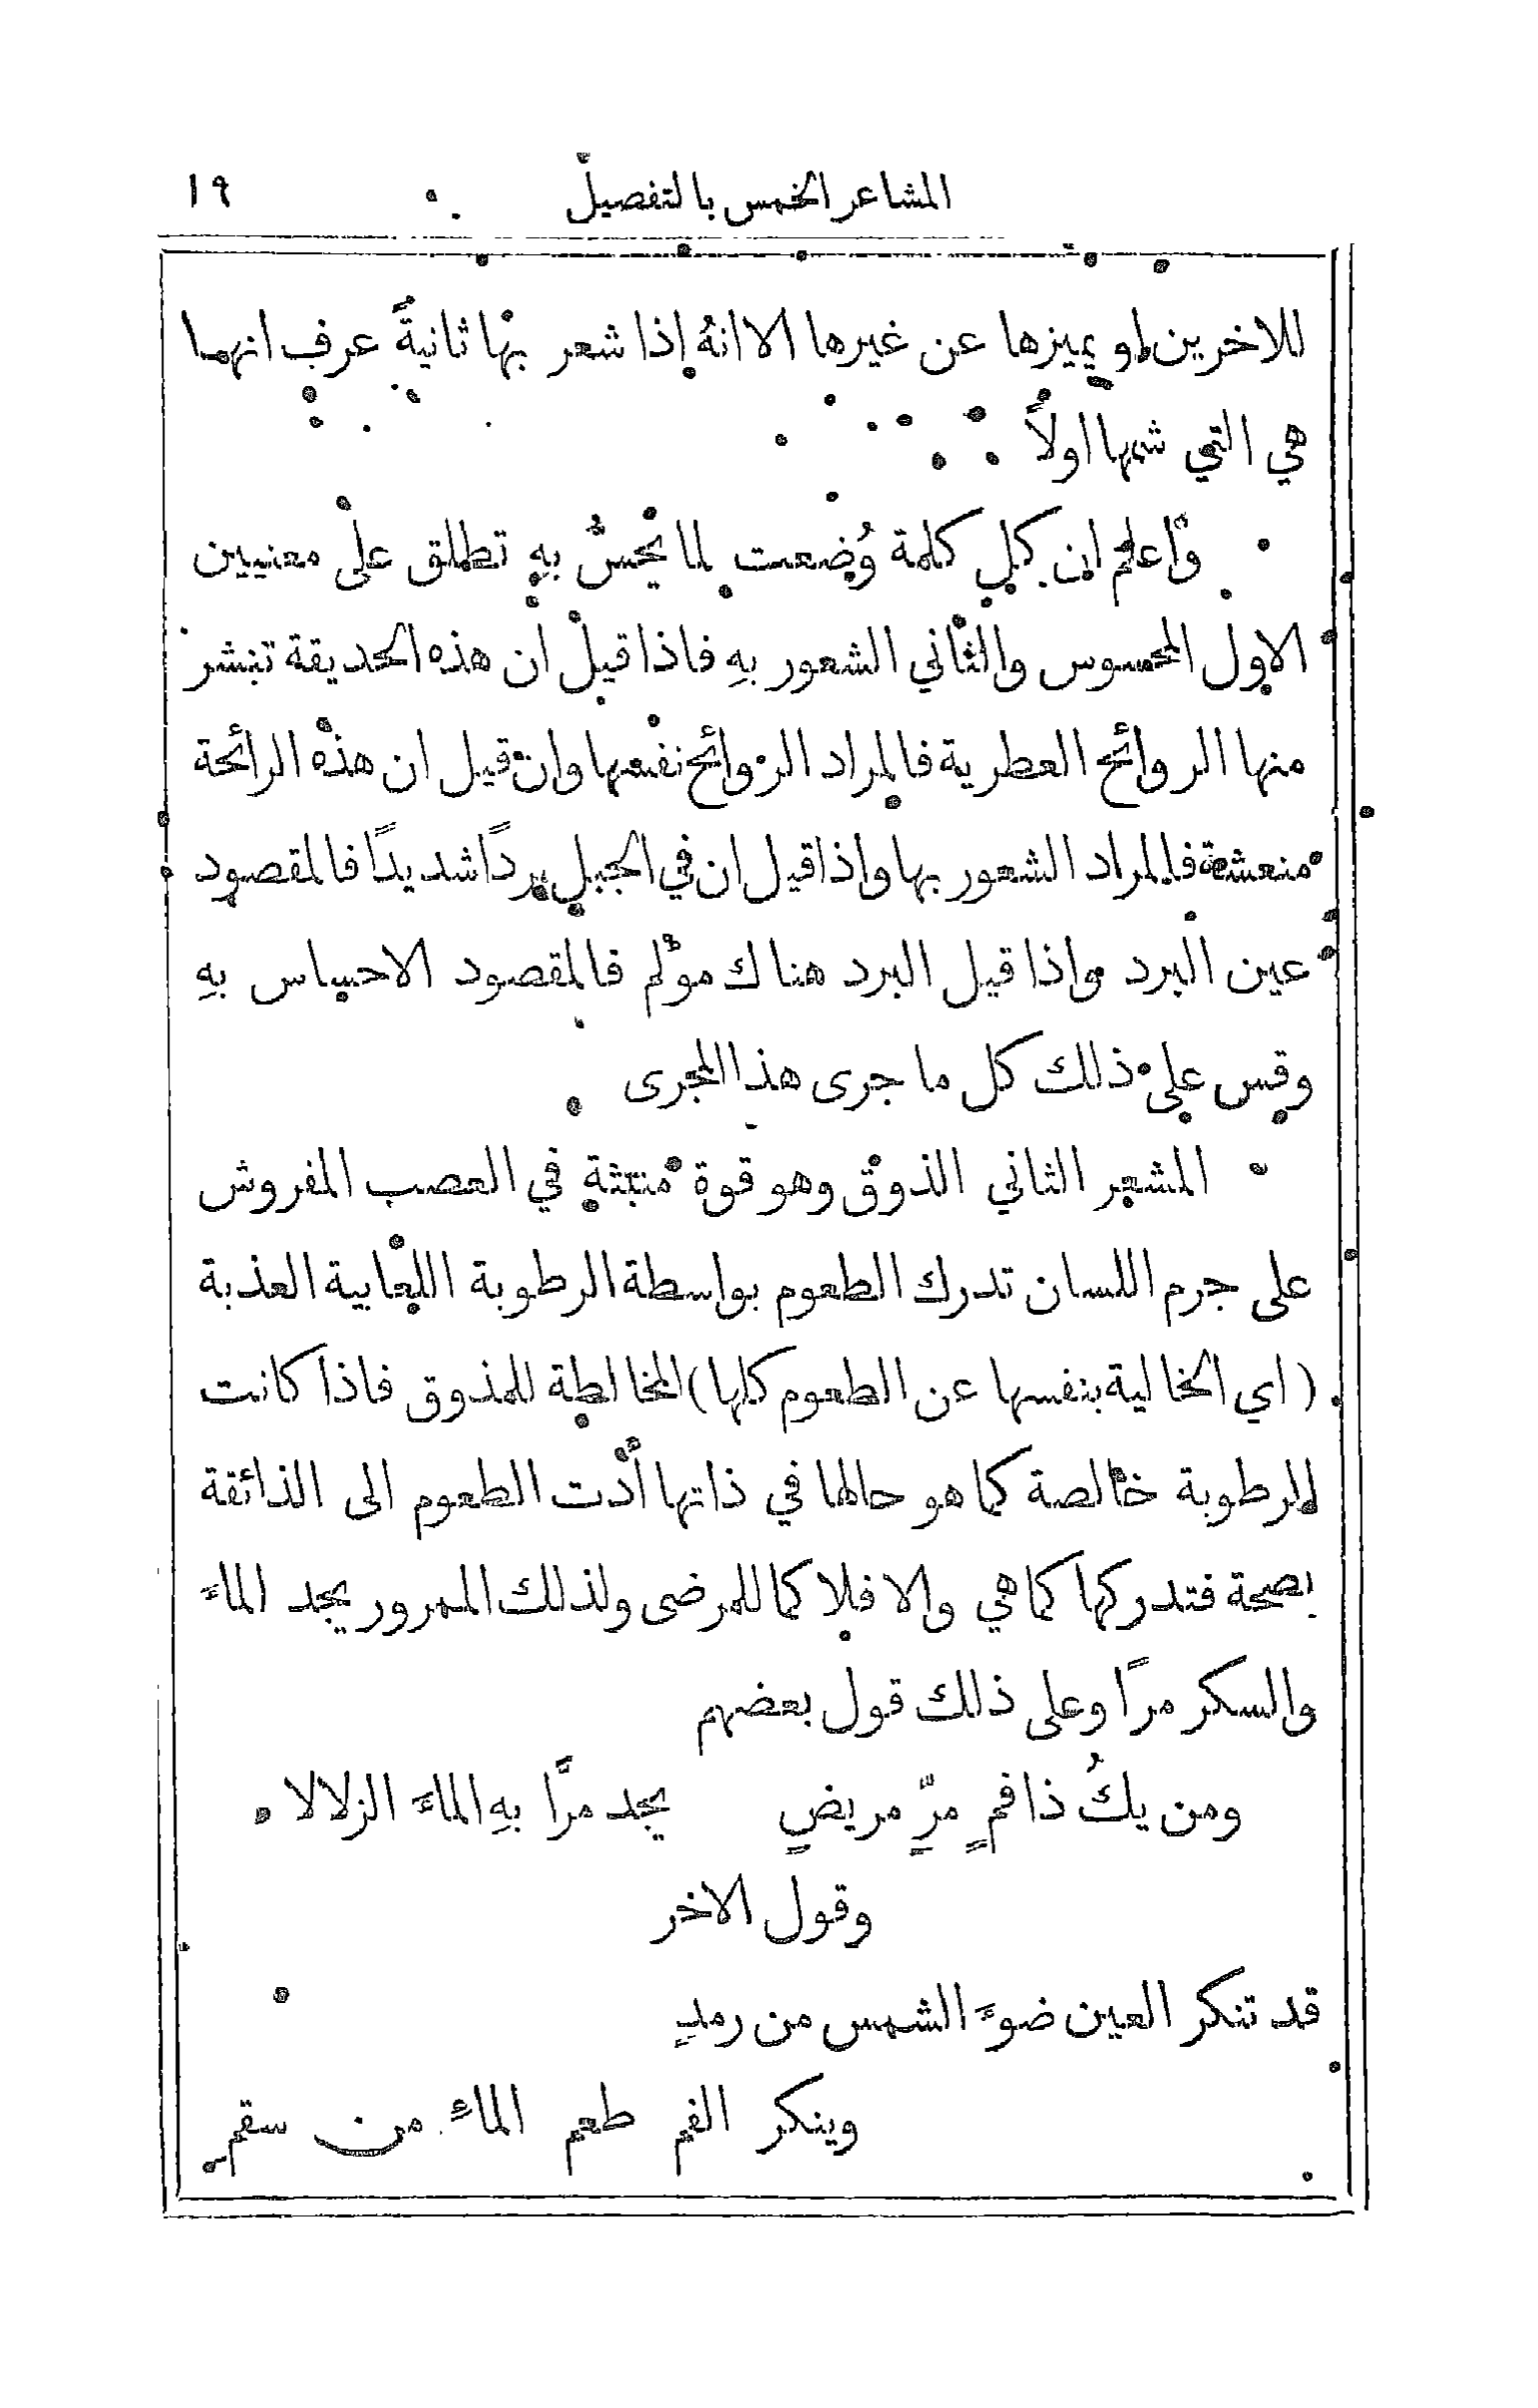 المشاعر الخمس بالتفصيل ١٩
للاخرين او يميزها عن غيرها الا انهُ إذا شعر بها ثانيةً عرف انهما
هي التي شمها اولاً
واعلم ان كل كلمة وُضعت لما يُحَسُّ بهِ تطلق على معنيين
الاول المحسوس والثاني الشعور بهِ فاذا قيل ان هذه الحديقة تنشر
منها الروائح العطرية فالمراد الروائح نفسها وان قيل ان هذه الرائحة
منعشة فالمراد الشعور بها واذا قيل ان في الجبل بردًا شديدًا فالمقصود
عين البرد واذا قيل البرد هناك مؤلم فالمقصود الاحساس بهِ
وقس على ذلك كل ما جرى هذا المجرى
المشعر الثاني الذوق وهو قوة منبثة في العصب المفروش
على جرم اللسان تدرك الطعوم بواسطة الرطوبة اللعابية العذبة
( اي الخالية بنفسها عن الطعوم كلها) المخالطة للمذوق فاذا كانت
الرطوبة خالصة كما هو حالها في ذاتها أدت الطعوم الى الذائقة
بصحة فتدركها كما هي والا فلا كما للمرضى ولذلك الممرور يجد الماءَ
والسكر مرًا وعلى ذلك قول بعضهم
ومن يكُ ذا فمٍ مرٍّ مريضٍ يجد مرًّا بهِ الماءَ الزلالا
وقول الاخر
قد تنكر العين ضوءَ الشمس من رمدٍ
وينكر الفم طعم الماءِ من سقمِ